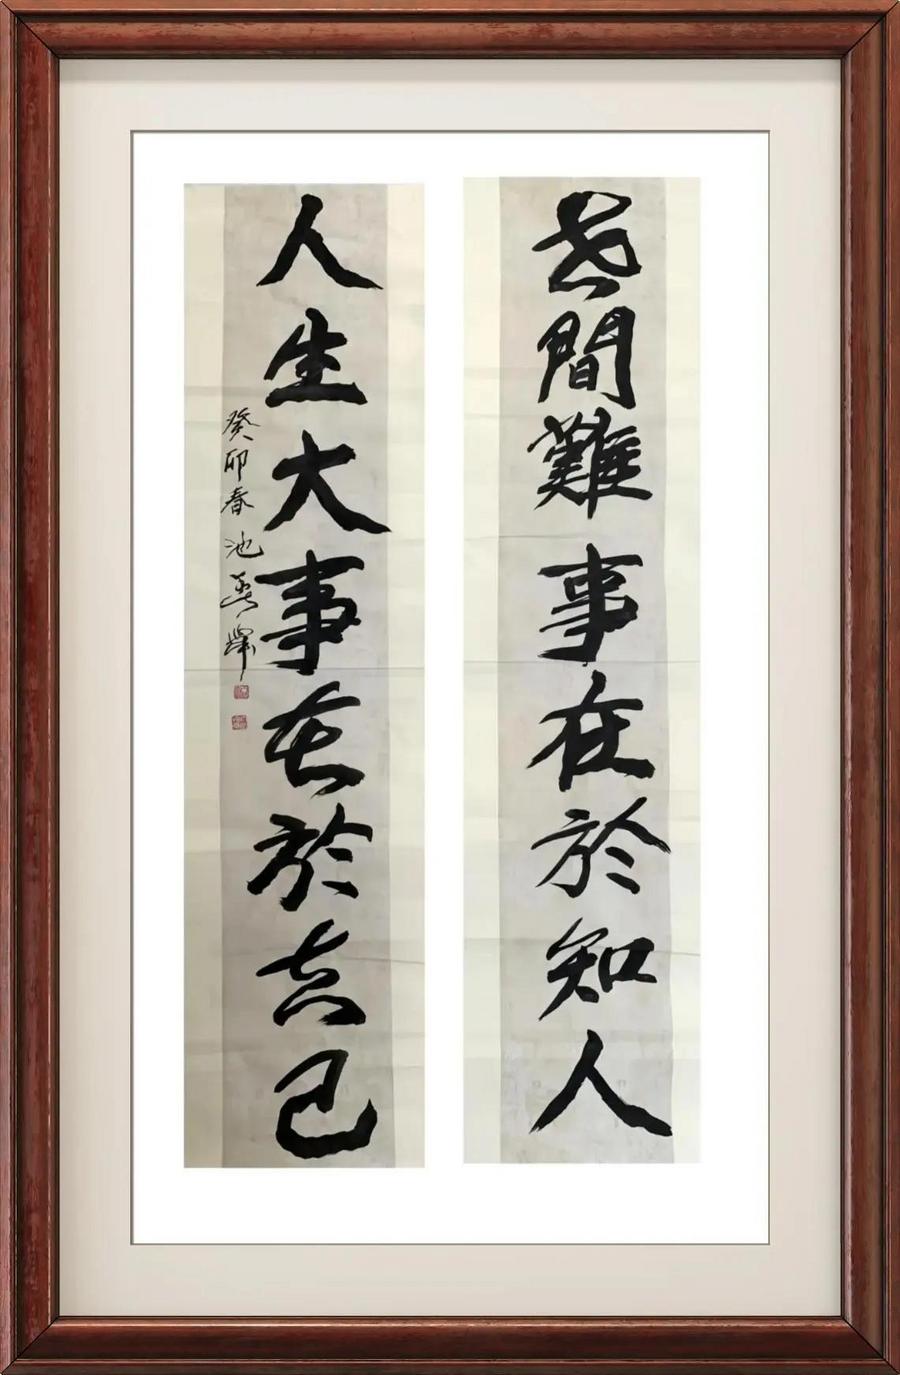 世間難事在於知人
人生大事在於克己
癸卯春池秀輝